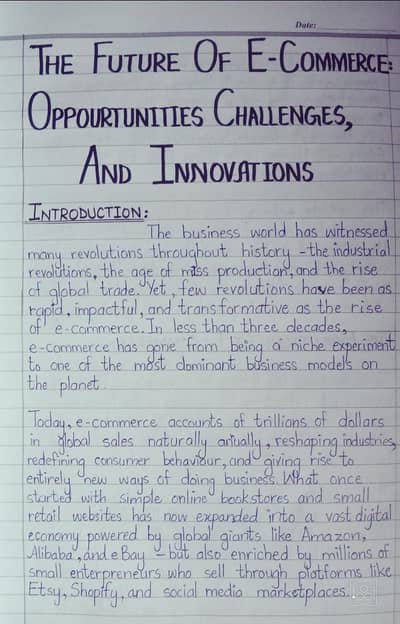 Date:
THE FUTURE OF E-COMMERCE:
OPPOURTUNITIES CHALLENGES,
AND INNOVATIONS
INTRODUCTION:
The business world has witnessed
many revolutions throughout history -the industrial
revolutions, the age of miss production, and the rise
of global trade. Yet, few revolutions have been as
rapid, impactful, and transformative as the rise
of e-commerce. In less than three decades,
e-commerce has gone from being a niche experiment
to one of the most dominant business models on
the planet.
Today, e-commerce accounts of trillions of dollars
in global sales naturally anually, reshaping industries,
redefining consumer behaviour, and giving rise to
entirely new ways of doing business. What once
started with simple online bookstores and small
retail websites has now expanded into a vast digital
economy powered by global giants like Amazon,
Alibaba, and eBay - but also enriched by millions of
small enterpreneurs who sell through platforms like
Etsy, Shopify, and social media marketplaces.